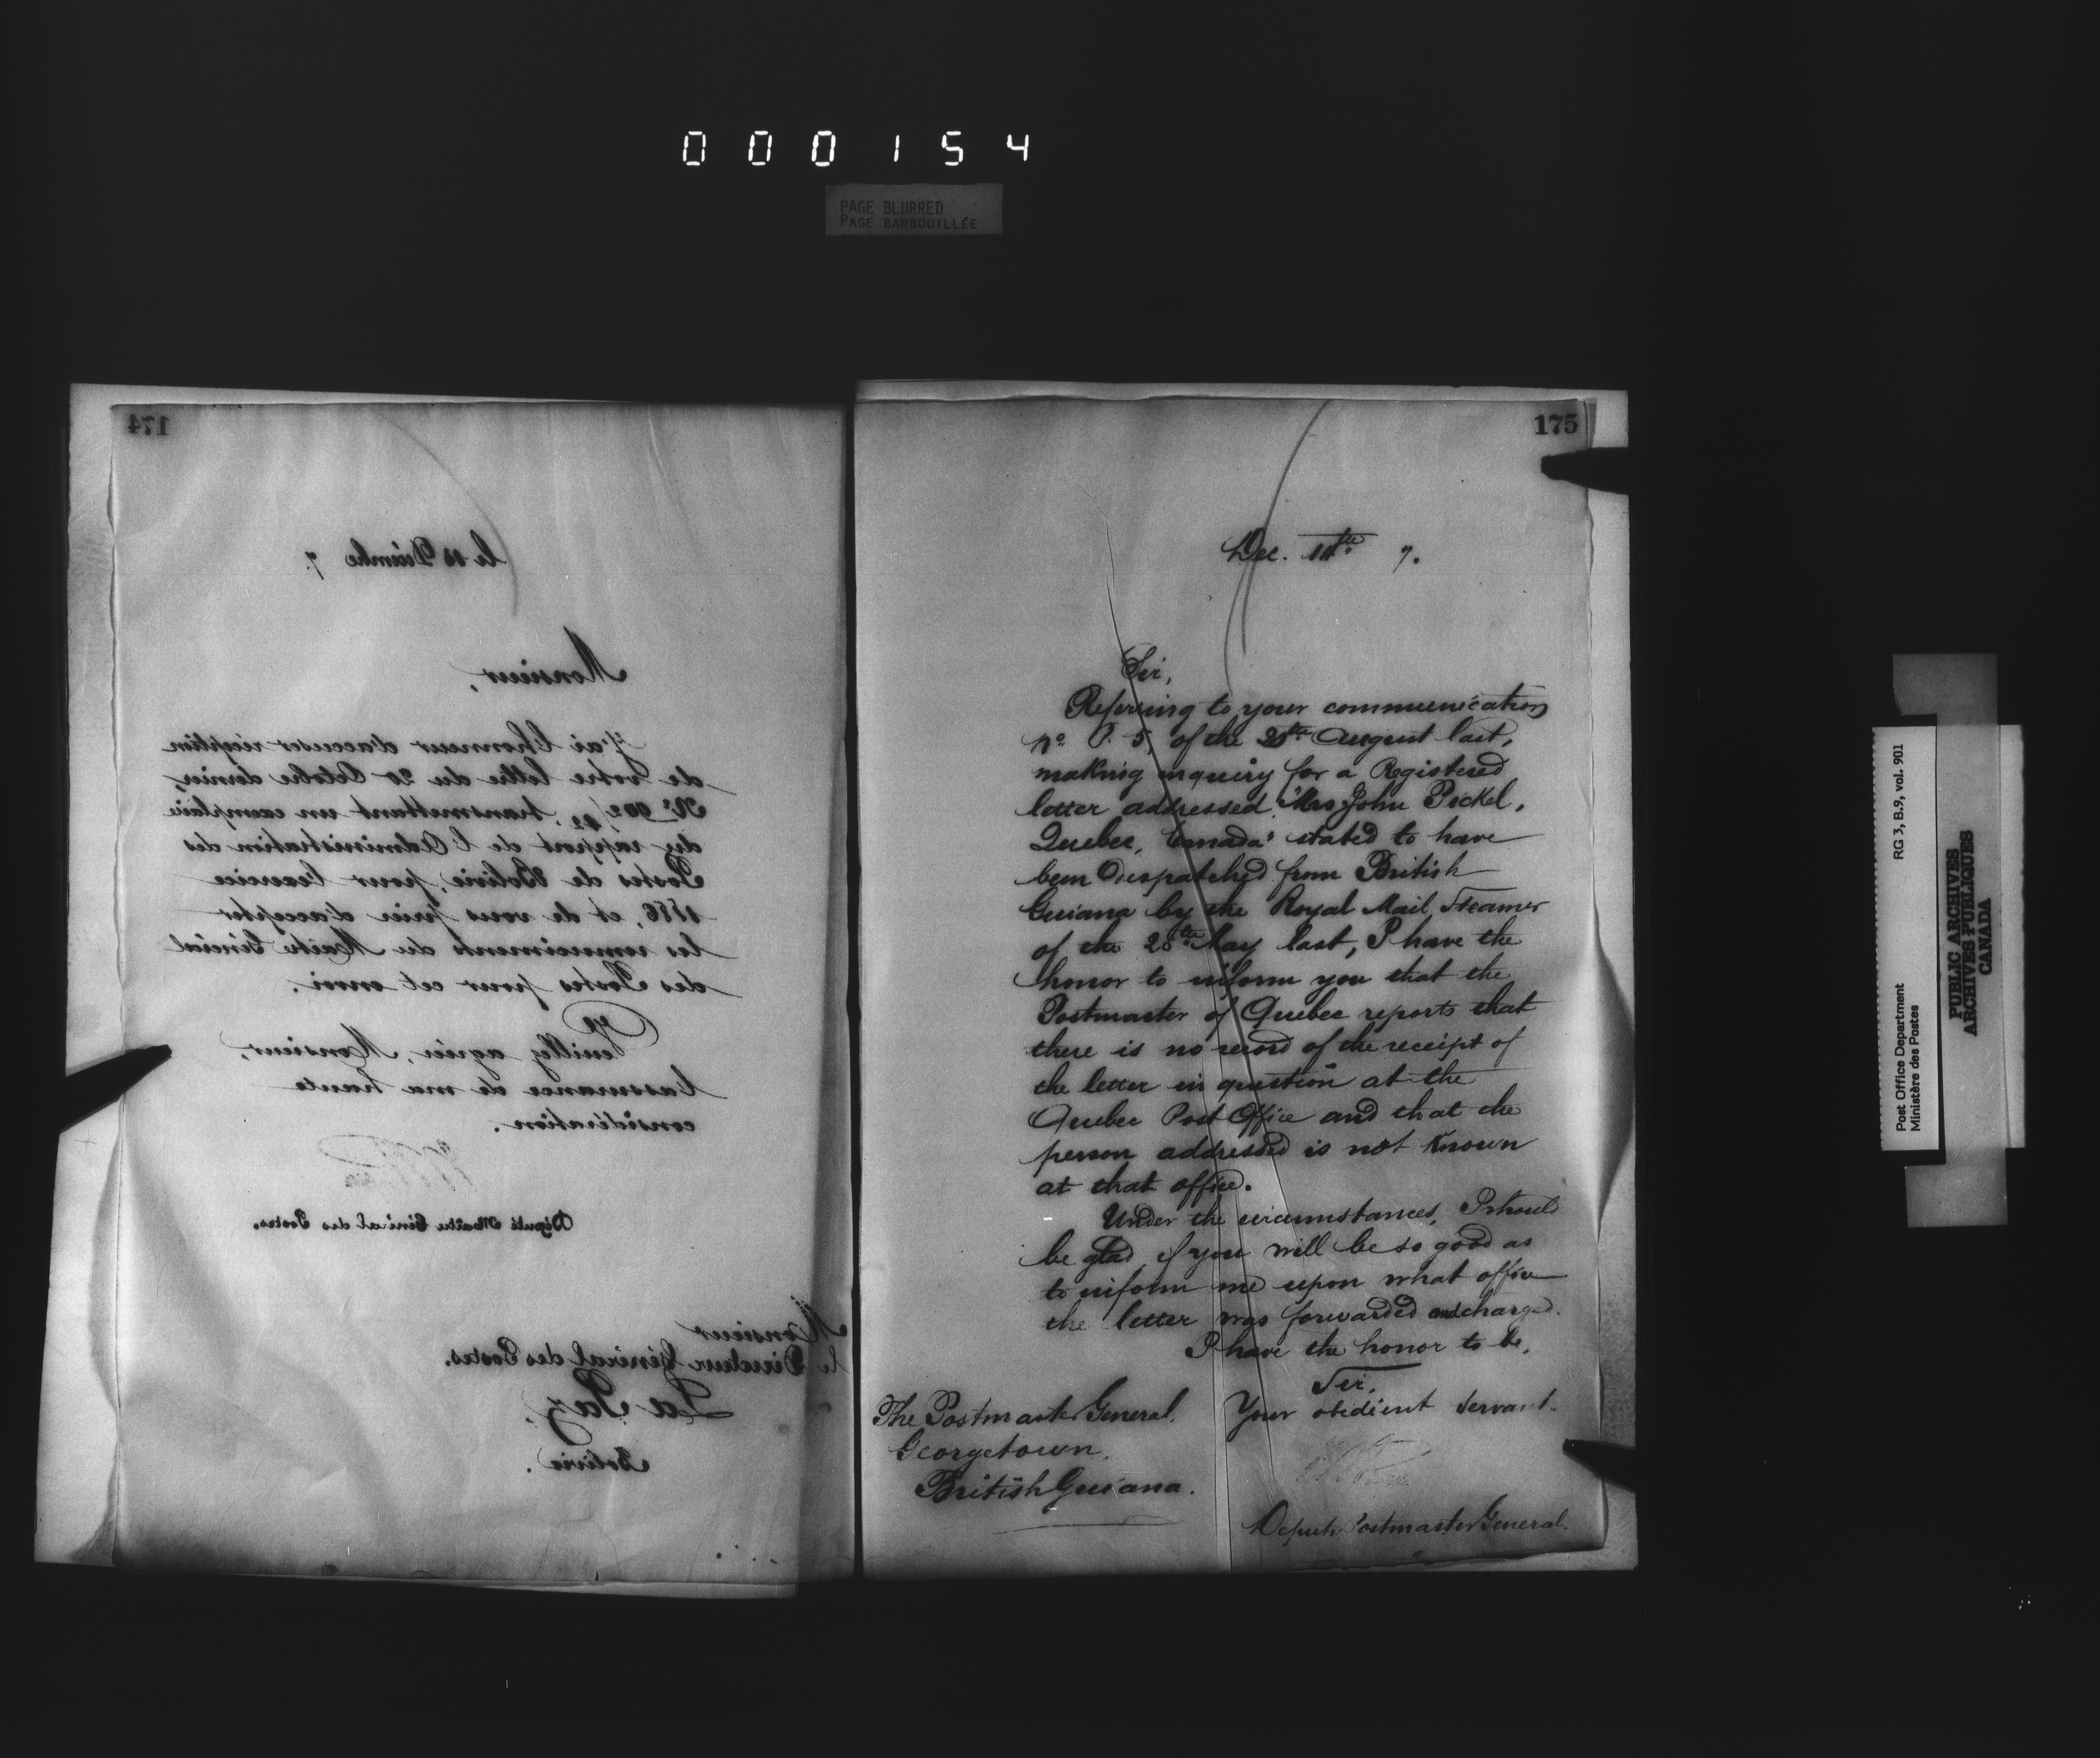 000154
PAGE BLURRED
PAGE BARBOUILLÉE
174
le 13 Décembre 7.
Monsieur,
J'ai l'honneur d'accuser réception
de votre lettre du 20 Octobre dernier,
transmettant un exemplaire
du rapport de l'Administration des
Postes de Bolivie, pour l'exercice
1886, et de vous prier d'accepter
les remerciments du Maître Général
des Postes pour cet envoi.
Veuillez agréer, Monsieur,
l'assurance de ma haute
considération.
Député Maître Général des Postes.
Monsieur
le Directeur Général des Postes.
La Paz,
Bolivie.
175
Dec. 7.
Sir,
Referring to your communication
No. P. 5, of the August last,
making inquiry for a Registered
letter addressed "Mrs John Pickel,
Quebec, Canada" stated to have
been Despatched from British
Guiana by the Royal Mail Steamer
of the 28th May last, I have the
honor to inform you that the
Postmaster of Quebec reports that
there is no record of the receipt of
the letter in question at the
Quebec Post Office and that the
person addressed is not Known
at that office.
Under the circumstances, I should
be glad if you will be so good as
to inform me upon what office
the letter was forwarded and charged.
I have the honor to be,
Sir,
Your obedient Servant.
The Postmaster General,
Georgetown,
British Guiana.
Deputy Postmaster General
Post Office Department RG 3, B.9, vol. 901
Ministère des Postes
PUBLIC ARCHIVES
ARCHIVES PUBLIQUES
CANADA